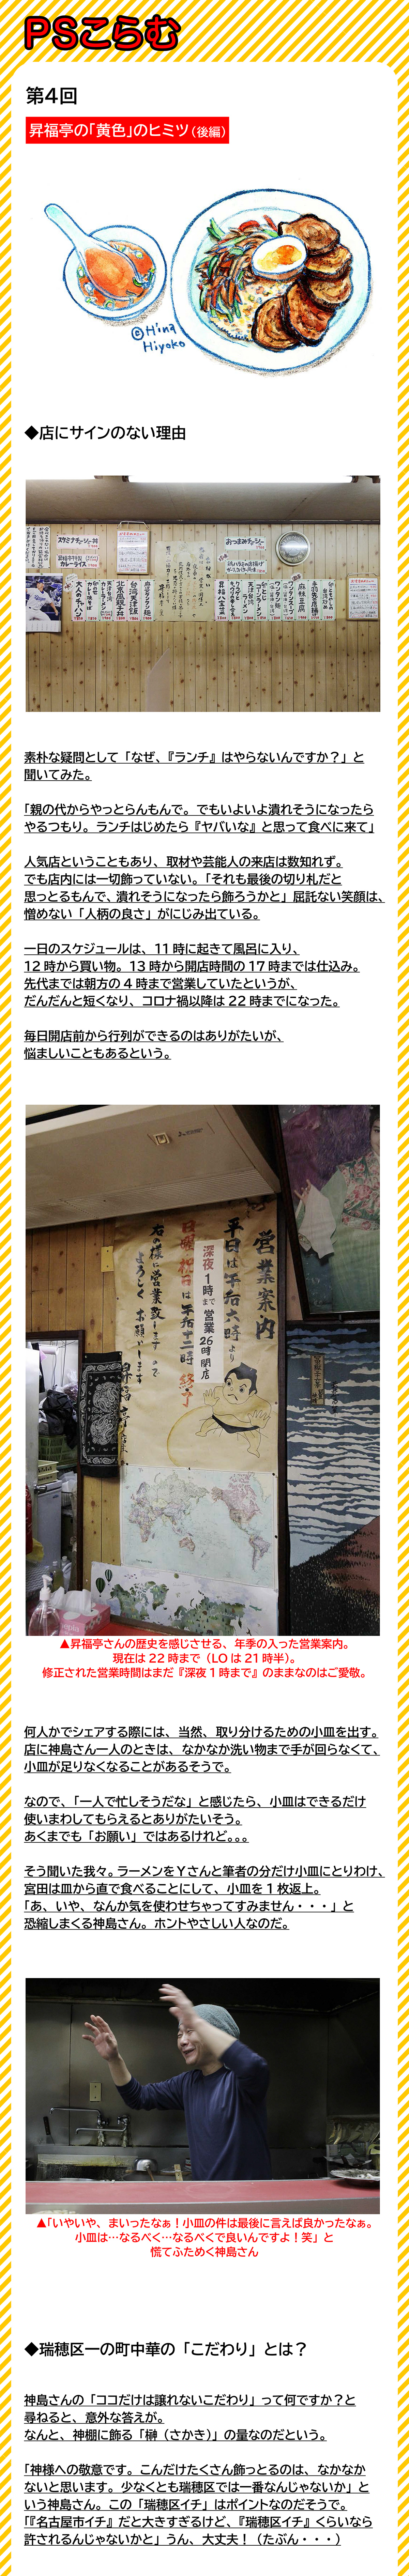 PSこらむ
第4回
昇福亭の「黄色」のヒミツ（後編）
©Hina
Hiyoko
◆店にサインのない理由
素朴な疑問として「なぜ、『ランチ』はやらないんですか？」と
聞いてみた。
「親の代からやっとらんもんで。でもいよいよ潰れそうになったら
やるつもり。ランチはじめたら『ヤバいな』と思って食べに来て」
人気店ということもあり、取材や芸能人の来店は数知れず。
でも店内には一切飾っていない。「それも最後の切り札だと
思っとるもんで、潰れそうになったら飾ろうかと」屈託ない笑顔は、
憎めない「人柄の良さ」がにじみ出ている。
一日のスケジュールは、11時に起きて風呂に入り、
12時から買い物。13時から開店時間の17時までは仕込み。
先代までは朝方の4時まで営業していたというが、
だんだんと短くなり、コロナ禍以降は22時までになった。
毎日開店前から行列ができるのはありがたいが、
悩ましいこともあるという。
営業案内
平日は午后六時より
深夜1時まで営業
26時閉店
日曜祝日は午后十二時終了
右の様に営業致しますので
よろしくお願いします
昇福亭
▲昇福亭さんの歴史を感じさせる、年季の入った営業案内。
現在は22時まで（LOは21時半）。
修正された営業時間はまだ『深夜1時まで』のままなのはご愛敬。
何人かでシェアする際には、当然、取り分けるための小皿を出す。
店に神島さん一人のときは、なかなか洗い物まで手が回らなくて、
小皿が足りなくなることがあるそうで。
なので、「一人で忙しそうだな」と感じたら、小皿はできるだけ
使いまわしてもらえるとありがたいそう。
あくまでも「お願い」ではあるけれど。。。
そう聞いた我々。ラーメンをYさんと筆者の分だけ小皿にとりわけ、
宮田は皿から直で食べることにして、小皿を1枚返上。
「あ、いや、なんか気を使わせちゃってすみません・・・」と
恐縮しまくる神島さん。ホントやさしい人なのだ。
▲「いやいや、まいったなぁ！小皿の件は最後に言えば良かったなぁ。
小皿は…なるべく…なるべくで良いんですよ！笑」と
慌てふためく神島さん
◆瑞穂区一の町中華の「こだわり」とは？
神島さんの「ココだけは譲れないこだわり」って何ですか？と
尋ねると、意外な答えが。
なんと、神棚に飾る「榊（さかき）」の量なのだという。
「神様への敬意です。こんだけたくさん飾っとるのは、なかなか
ないと思います。少なくとも瑞穂区では一番なんじゃないか」と
いう神島さん。この「瑞穂区イチ」はポイントなのだそうで。
「『名古屋市イチ』だと大きすぎるけど、『瑞穂区イチ』くらいなら
許されるんじゃないかと」うん、大丈夫！（たぶん・・・）